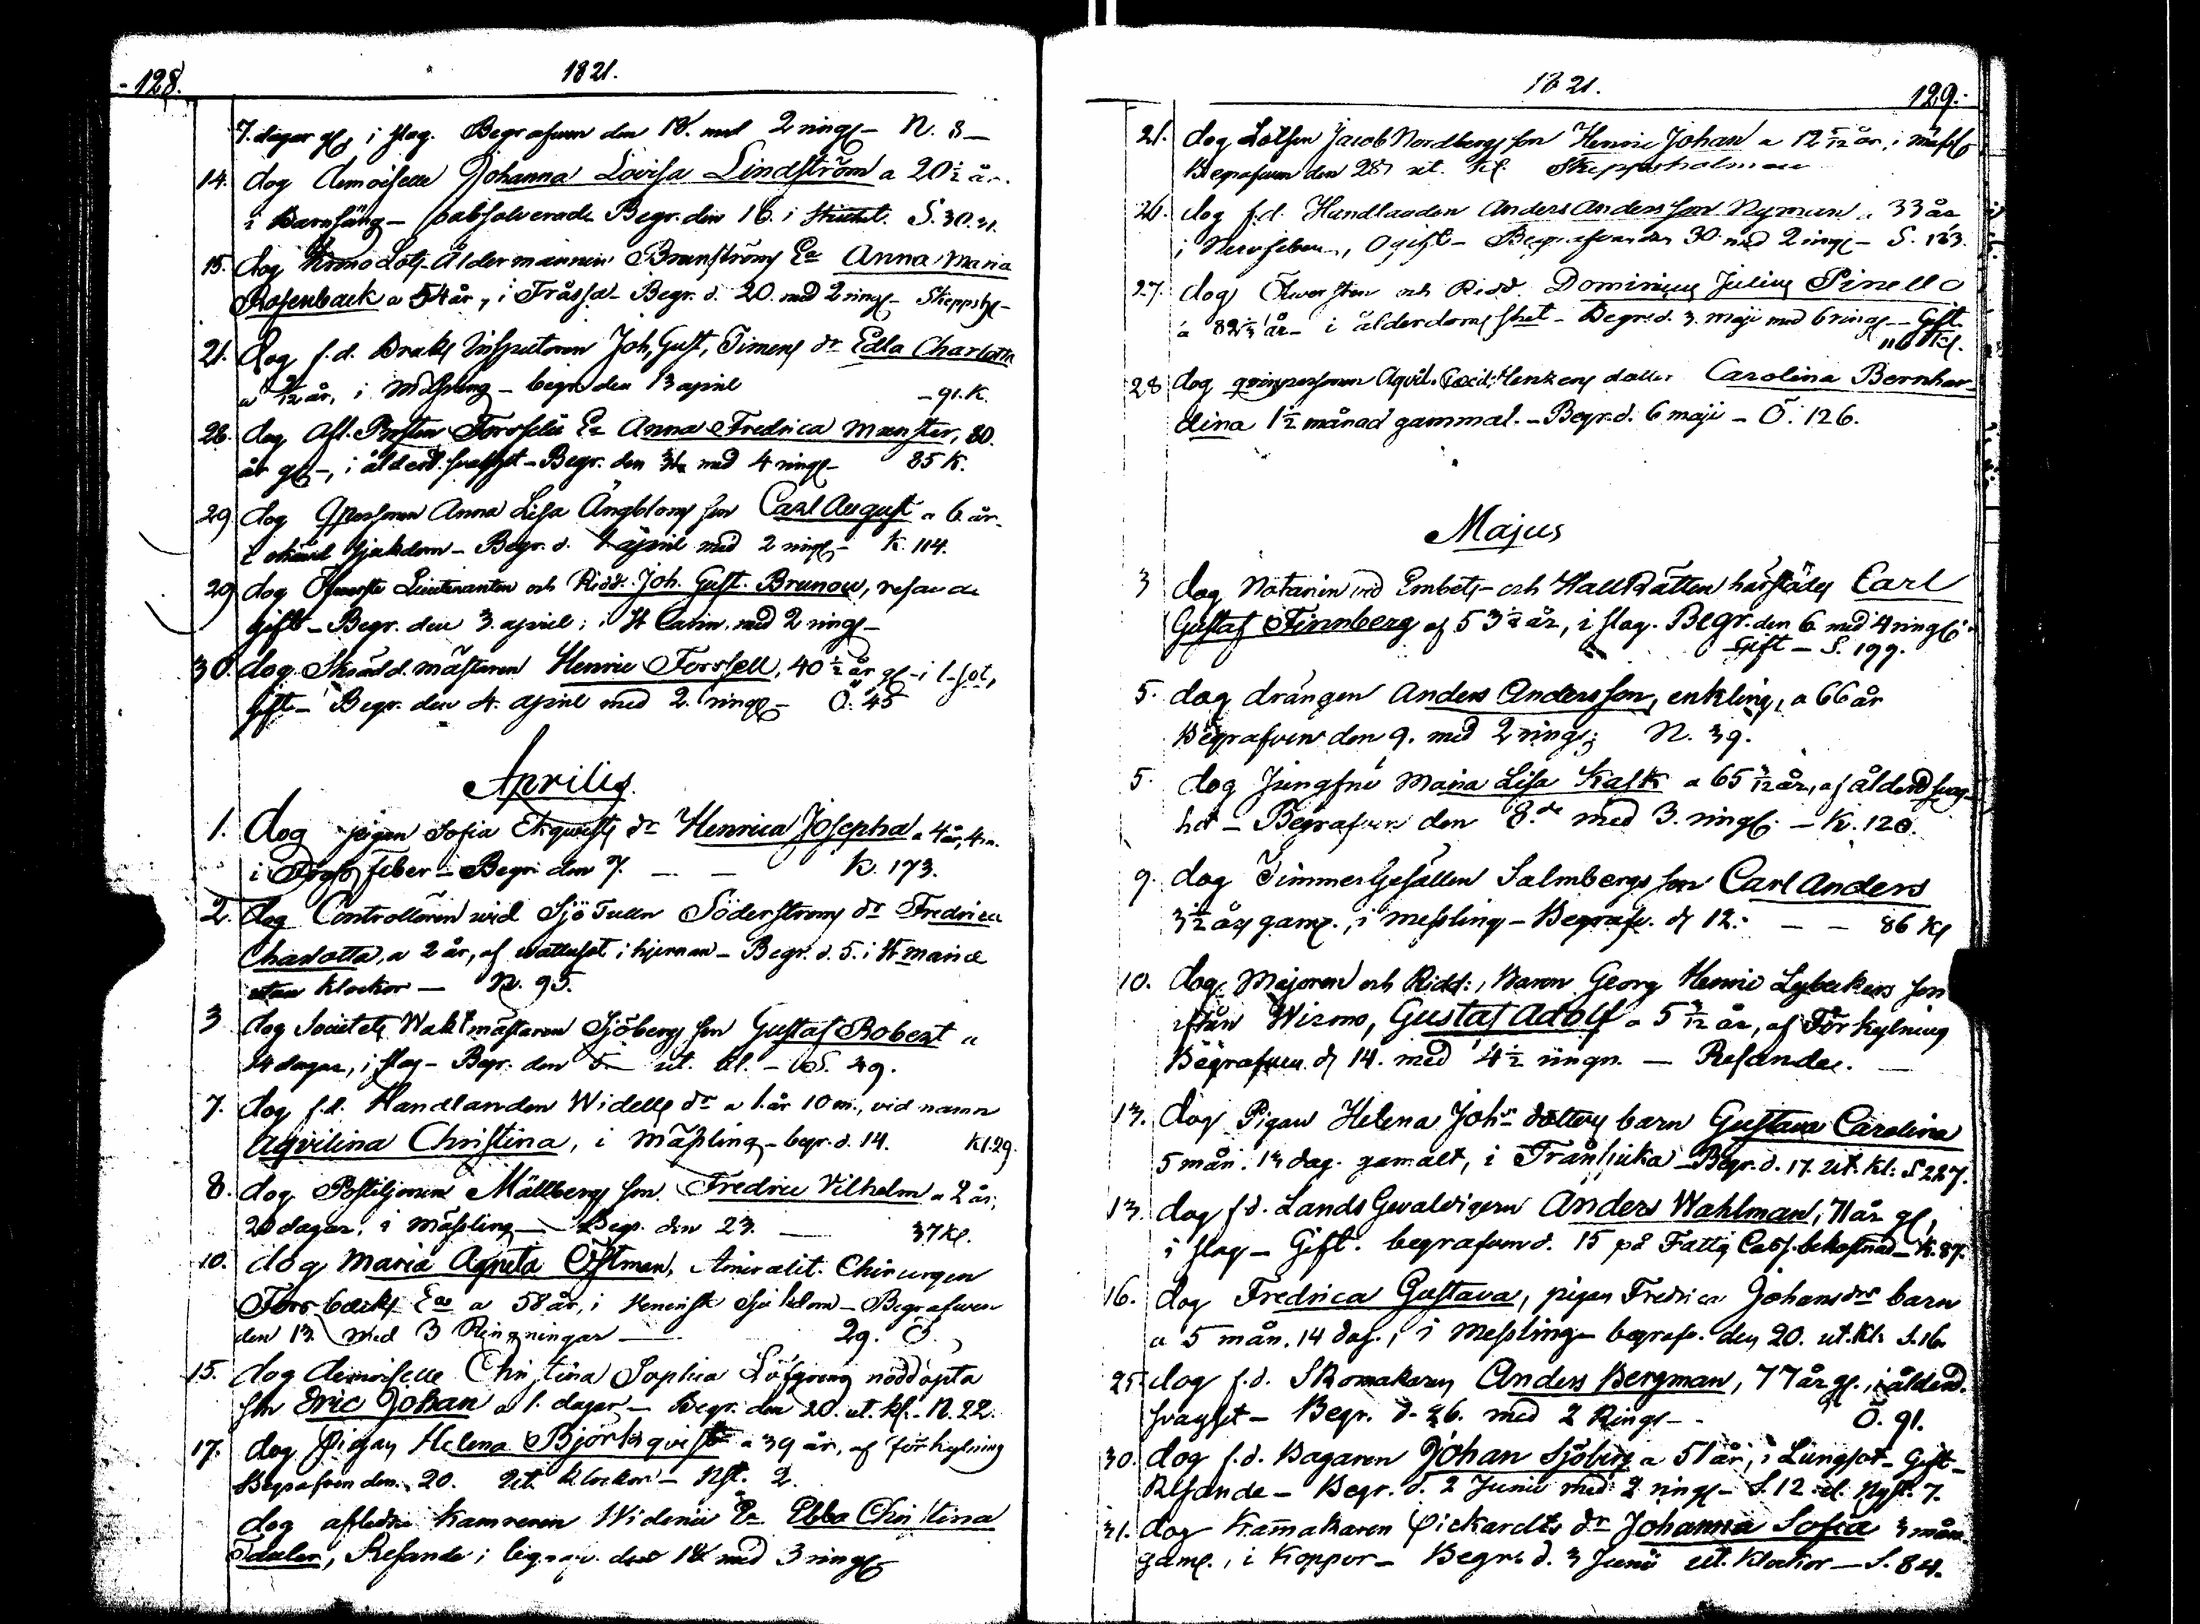 -128.
1821.
7. dagar gl, i slag. Begrafven den 18. med 2 ringr- N. 8-
14. dog demoiselle Johanna Lovisa Lindström a 20½ år.
i Barnsäng - Begr. den 16. i S. 30.
15. dog Lots-Åldermannen Brunströms Ea Anna Maria
Rosenback a 54 år, i Fråssa- Begr. d. 20. med 2 ringr- Skeppsh-
21. Dog f.d. Bruks Inspectoren Joh. Gust. Timens dr Edla Charlotta
a 9/12 år, i Mässling - begr. den 13 april -91. K.
28. dog Afl. Forsselii Ea Anna Fredrica Munster, 80.
år gl-, i ålderd. svaghet - Begr. den med 4 ringr- 85 K.
29 dog Anna Lisa Ängbloms son Carl August a 6 år-
sjukdom - Begr. d. april med 2 ringr- K. 114.
29 dog Öfwerste Lieutenanten och Ridd. Joh. Gust. Brunow, resande
gift - Begr. den 3. april; i St Carin. med 2 ringr-
30. dog Skrädd. mästaren Henric Forssell, 40½ år gl- i l-sot,
Gift- Begr. den 4. april med 2. ringr- Ö. 45
Aprilis.
1. dog pigan Sofia Ekqvists dr Henrica Josepha a 4 år, 4 m.
i feber - Begr. den 7. — — K. 173.
2. dog Controllören wid Sjö Tullen Söderströms dr Fredrica
Charlotta, a 2 år, af wattusot i hjernan - Begr. d. 5. i St mariæ
utan klockor — N. 95.
3 dog Societets Waktmästaren Sjöbergs son Gustaf Robert a
14 dagar, i slag - Begr. den 5 ut. kl. - S. 29.
7. dog f.d. Handlanden Widells dr a 1. år 10 m., vid namn
Aqvilina Christina, i Mässling - begr. d. 14. Kl. 29.
8. dog Postiljonen Mällbergs son Fredric Vilhelm a 2 år,
20 dagar, i Mässling — Begr. den 23. — 37 Kl.
10. dog Maria Agneta Östman, Amiralit. Chirurgen
Forsbacks Ea a 58 år, i Venerisk Sjukdom - Begrafven
den 13 med 3 Ringningar — 29. Ö.
15. dog demoiselle Christina Sophia Löfgrens nöddöpta
son Eric Johan a 1. dagar - Begr. den 20. ut. kl. - N. 22.
17. dog Pigan Helena Björkqvist a 39 år, af förkylning
Begrafven den 20. Ut. klockor - Nst. 2.
dog afledne Kamreren Widenii Ea Ebba Christina
Resande; begraf. den 18 med 3 ringr
1821.
129.
21. dog Lotsen Jacob Nordbergs son Henric Johan a 12 5/12 år, i mässl
Begrafven den 28 ut. kl. Skeppsholman
26. dog f.d. Handlanden Anders Andersson Nyman a 33 år
i Nervfeber, Ogift - Begrafven den 30. med 2 ringr - S. 163.
27. dog Öwersten och Ridd. Dominicus Julius Pinello
a 82⅓ år - i ålderdomssket - Begr. d. 3. maji med 6 ringr - Gift
116 Kl.
28 dog qvinspersonen Aqvil. Cæcil. Henkens dotter Carolina Bernhar-
dina 1½ månad gammal. - Begr. d. 6 maji - Ö. 126.
Majus
3 dog Notarien wid Embets- och HallRätten härstädes Carl
Gustaf Finnberg af 53½ år, i slag. Begr. den 6. med 4 ringr
Gift - S. 199.
5. dog drängen Anders Andersson, enkling, a 66 år
Begrafven den 9. med 2 ringr; N. 39.
5. dog Jungfru Maria Lisa Kask a 65 3/12 år, af ålderdsvag-
het - Begrafven den 8.de med 3. ringr. - K. 120.
9. dog Timmer Gesällen Salmbergs son Carl Anders
3½ års gaml., i messling - Begrafv. d. 12. - — — 86 Kl
10. dog Majoren och Ridd:, Baron Georg Henric Lybeckers son
ifrån Wirmo, Gustaf Adolf a 5 3/12 år, af Förkylning
Begrafven d. 14. med 4½ ringn. — Resande. —
13. dog Pigan Helena Johs dotters barn Gustava Carolina
5 mån. 13 dag. gamalt, i Trånsjuka - Begr. d. 17. ut. kl. S 227.
13. dog f.d. Lands Gevaldigern Anders Wahlman, 71 år gl,
i slag - Gift. begrafven d. 15 på Fattig Cass. bekostnad - K. 87.
16. dog Fredrica Gustava, pigan Fredrica Johansdrs barn
a 5 mån. 14 dag., i Messling - begrafv. den 20. ut. kl. S. 16.
25. dog f.d. Skomakaren Anders Bergman, 77 år gl., i ålderd.
svaghet - Begr. d. 26. med 2 Ringr- - Ö. 91.
30. dog f.d. Bagaren Johan Sjöberg a 51 år, i Lungsot - Gift -
Resande - Begr. d. 2 Junii med 2 ringr - S. 12 el. Nyst. 7.
31. dog Kammakaren Pickardts dr Johanna Sofia 3 mån.
gaml., i Koppor - Begr. d. 3 Junii ut. klockor - S. 84.